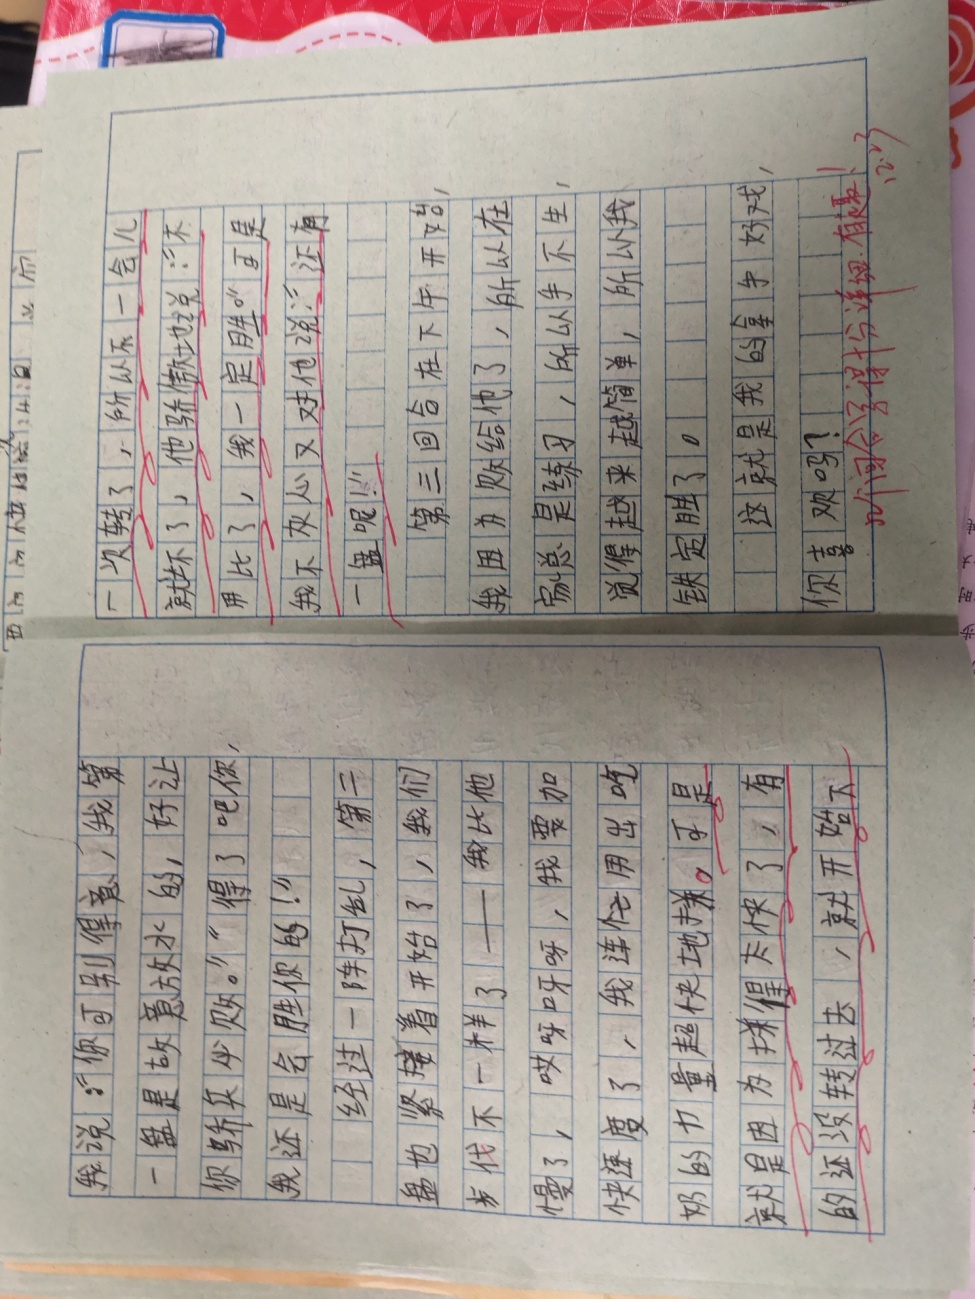 我说：“你可别得意，我第
一盘是故意放水的，好让
你骄兵必败。”“得了吧你，
我还是会胜你的！”
经过一阵打乱，第二
盘也紧接着开始了，我们
步伐不一样了——我比他
慢了，哎呀呀呀，我要加
快速度了，我连忙用出吃
奶的力量超快地拼。可是
就是因为拼得太快了，有
的还没转过去，就开始下
一次转了，所以不一会儿
就坏了，他骄傲地说：“不
用比了，我一定胜。”可是
我不灰心又对他说：“还有
一盘呢！”
第三回合在下午开始，
我因为败给他了，所以在
家总是练习，所以手不生，
觉得越来越简单，所以我
铁定胜了。
这就是我的拿手好戏，
你喜欢吗？